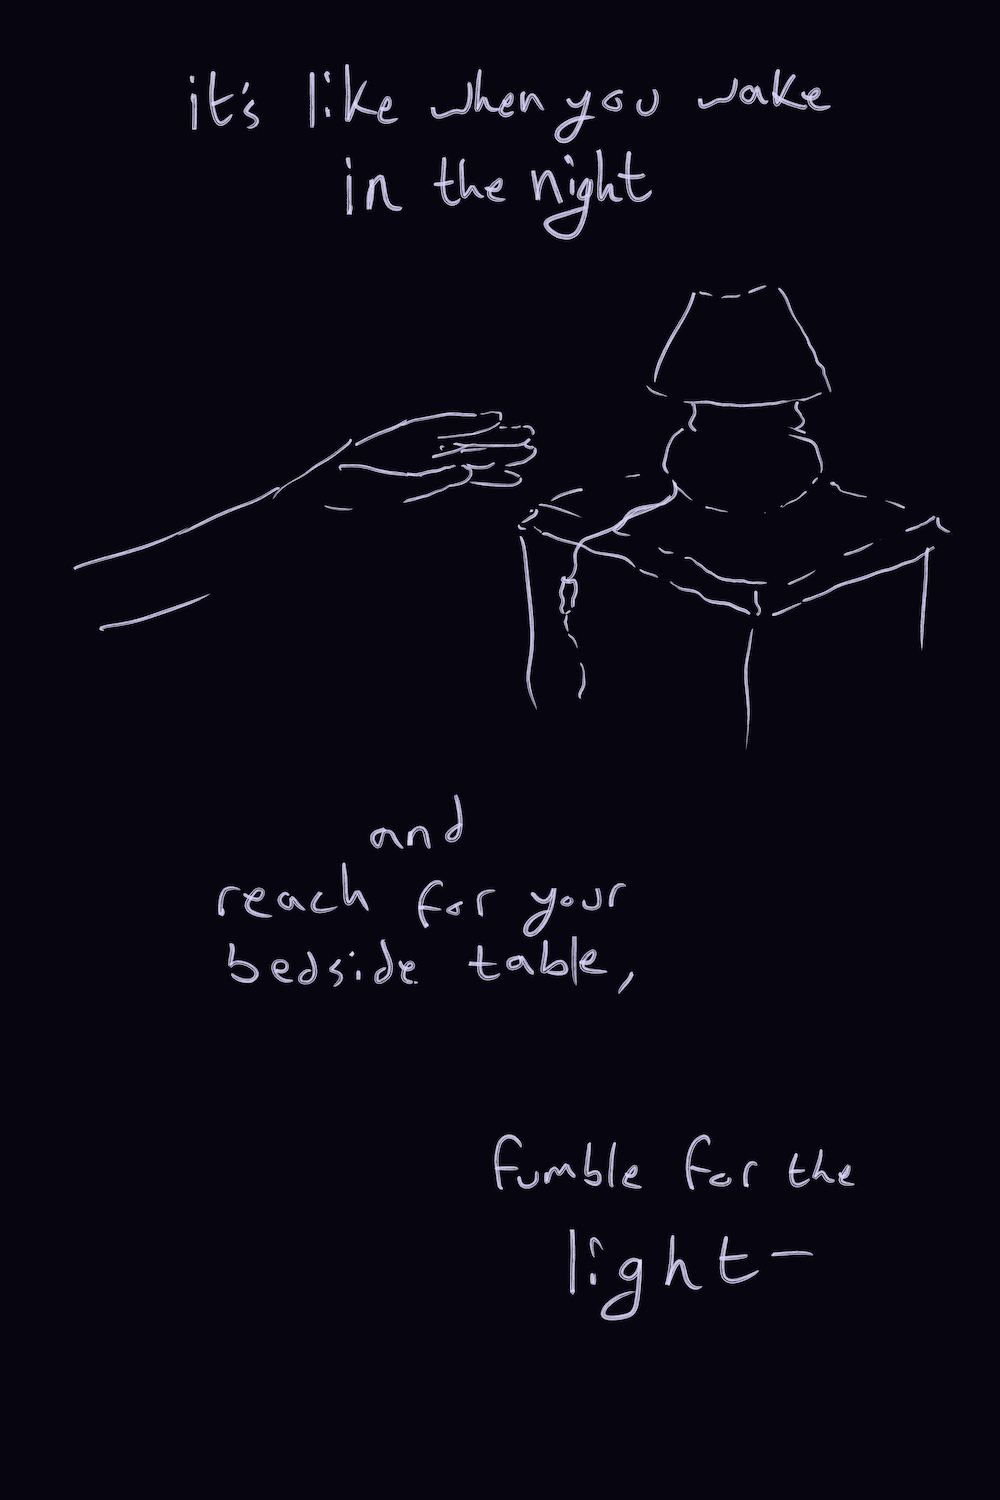 it's like when you wake
in the night
and
reach for your
bedside table,
fumble for the
light—